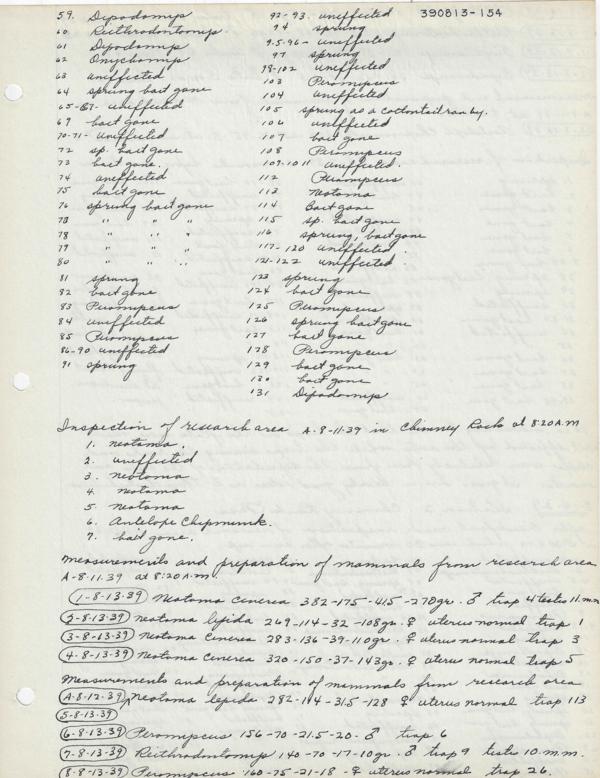 390813-154
59. Dipodomys
60 Reithrodontomys.
61 Dipodomys
62 Onychomys
63 uneffected
64 sprung bait gone
65-67- uneffected
69 bait gone
70-71- uneffected
72 sp. bait gone
73 bait gone.
74 uneffected
75 bait gone
76 sprung bait gone
78 " " "
78 " " "
79 " " "
80 " " "
81 sprung
82 bait gone
83 Peromyscus
84 uneffected
85 Peromyscus
86-90 uneffected
91 sprung
92-93. uneffected
94 sprung
95-96- uneffected
97 sprung
98-102 uneffected
103 Peromyscus
104 uneffected
105 sprung as a cottontail ran by.
106 uneffected
107 bait gone
108 Peromyscus
109-1011 uneffected.
112 Peromyscus
113 Neotoma
114 Bait gone
115 sp. bait gone
116 sprung, bait gone
117-120 uneffected
121-122 uneffected
123 sprung
124 bait gone
125 Peromyscus
126 sprung bait gone
127 bait gone
128 Peromyscus
129 bait gone
130 bait gone
131 Dipodomys
Inspection of research area A-8-11-39 in Chimney Rock at 8:20 A.M
1. neotoma.
2. uneffected
3. neotoma
4. neotoma
5. neotoma
6. Antelope Chipmunk.
7. bait gone.
Measurements and preparation of mammals from research area
A-8-11-39 at 8:20 A.M.
1-8-13-39 Neotoma Cinerea 382-175-41.5-270gr. ♂ trap 4 testis 11.m.m
2-8-13-39 neotoma lepida 269-114-32-108gr. ♀ uterus normal trap 1
3-8-13-39 Neotoma Cinerea 283-136-39-110gr. ♀ uterus normal trap 3
4-8-13-39 Neotoma Cinerea 320-150-37-143gr. ♀ uterus normal trap 5
Measurements and preparation of mammals from research area
A-8-12-39, Neotoma lepida 282-114-31.5-128 ♀ uterus normal trap 113
5-8-13-39
6-8-13-39 Peromyscus 156-70-21.5-20. ♂ trap 6
7-8-13-39 Reithrodontomys 140-70-17-10gr. ♂ trap 9 testis 10.m.m.
8-8-13-39 Peromyscus 160-75-21-18 ♀ uterus normal trap 26.